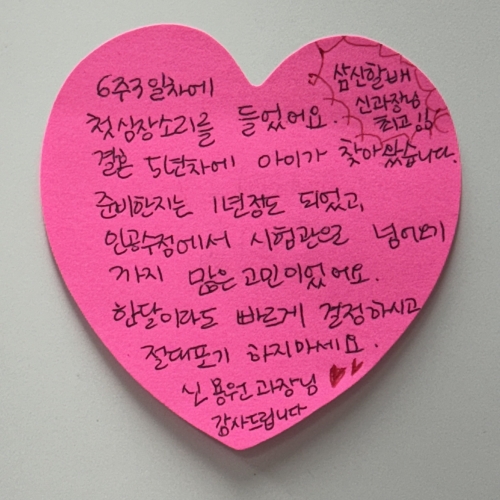 6주3일차에
첫심장소리를 들었어요.
결혼 5년차에 아이가 찾아왔습니다.
준비한지는 1년정도 되었고,
인공수정에서 시험관으로 넘어오기
까지 많은 고민이었어요.
한달이라도 빠르게 결정하시고
절대포기 하지마세요.
신용원과장님
감사드립니다
삼신할배
신과장님
최고